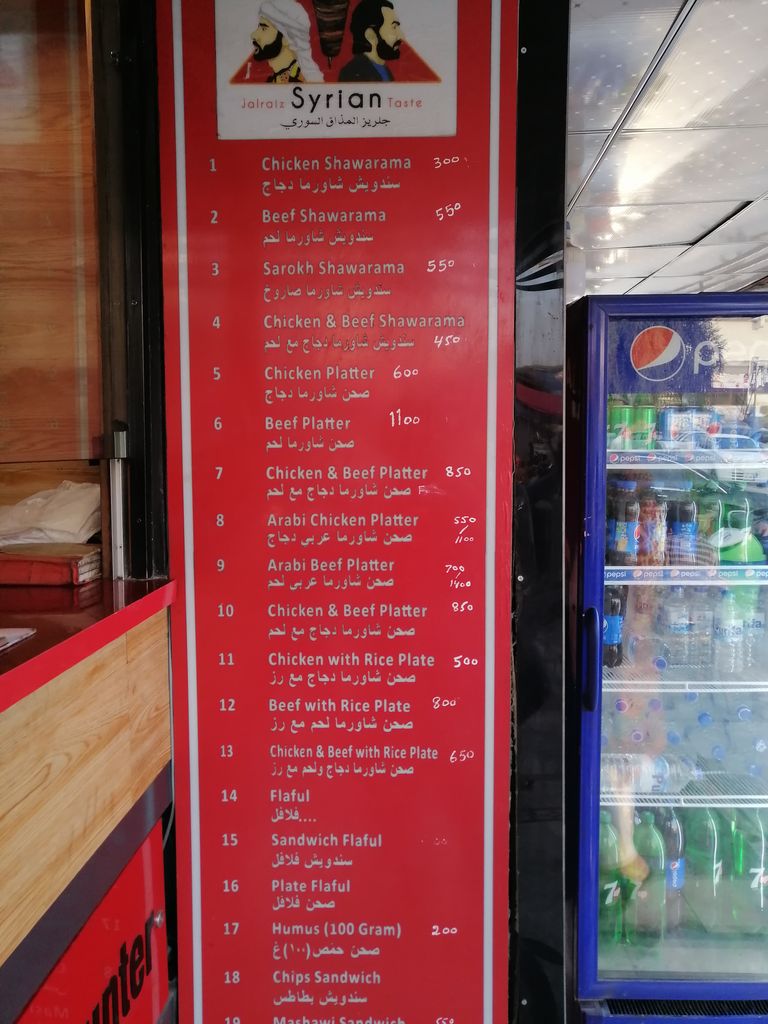 Jalraiz Syrian Taste
جلريز المذاق السوري
1 Chicken Shawarama 300
سندويش شاورما دجاج
2 Beef Shawarama 550
سندويش شاورما لحم
3 Sarokh Shawarama 550
سندويش شاورما صاروخ
4 Chicken & Beef Shawarama
سندويش شاورما دجاج مع لحم 450
5 Chicken Platter 600
صحن شاورما دجاج
6 Beef Platter 1100
صحن شاورما لحم
7 Chicken & Beef Platter 850
صحن شاورما دجاج مع لحم
8 Arabi Chicken Platter 550
صحن شاورما عربي دجاج 1100
9 Arabi Beef Platter 700
صحن شاورما عربي لحم 1400
10 Chicken & Beef Platter 850
صحن شاورما دجاج مع لحم
11 Chicken with Rice Plate 500
صحن شاورما دجاج مع رز
12 Beef with Rice Plate 800
صحن شاورما لحم مع رز
13 Chicken & Beef with Rice Plate 650
صحن شاورما دجاج ولحم مع رز
14 Flaful
فلافل....
15 Sandwich Flaful
سندويش فلافل
16 Plate Flaful
صحن فلافل
17 Humus (100 Gram) 200
صحن حمص(١٠٠)غ
18 Chips Sandwich
سندويش بطاطس
19 Mashawi Sandwich 550
unter
pepsi
pepsi
pepsi
pepsi
pepsi
pepsi
pepsi
7
7
7
7